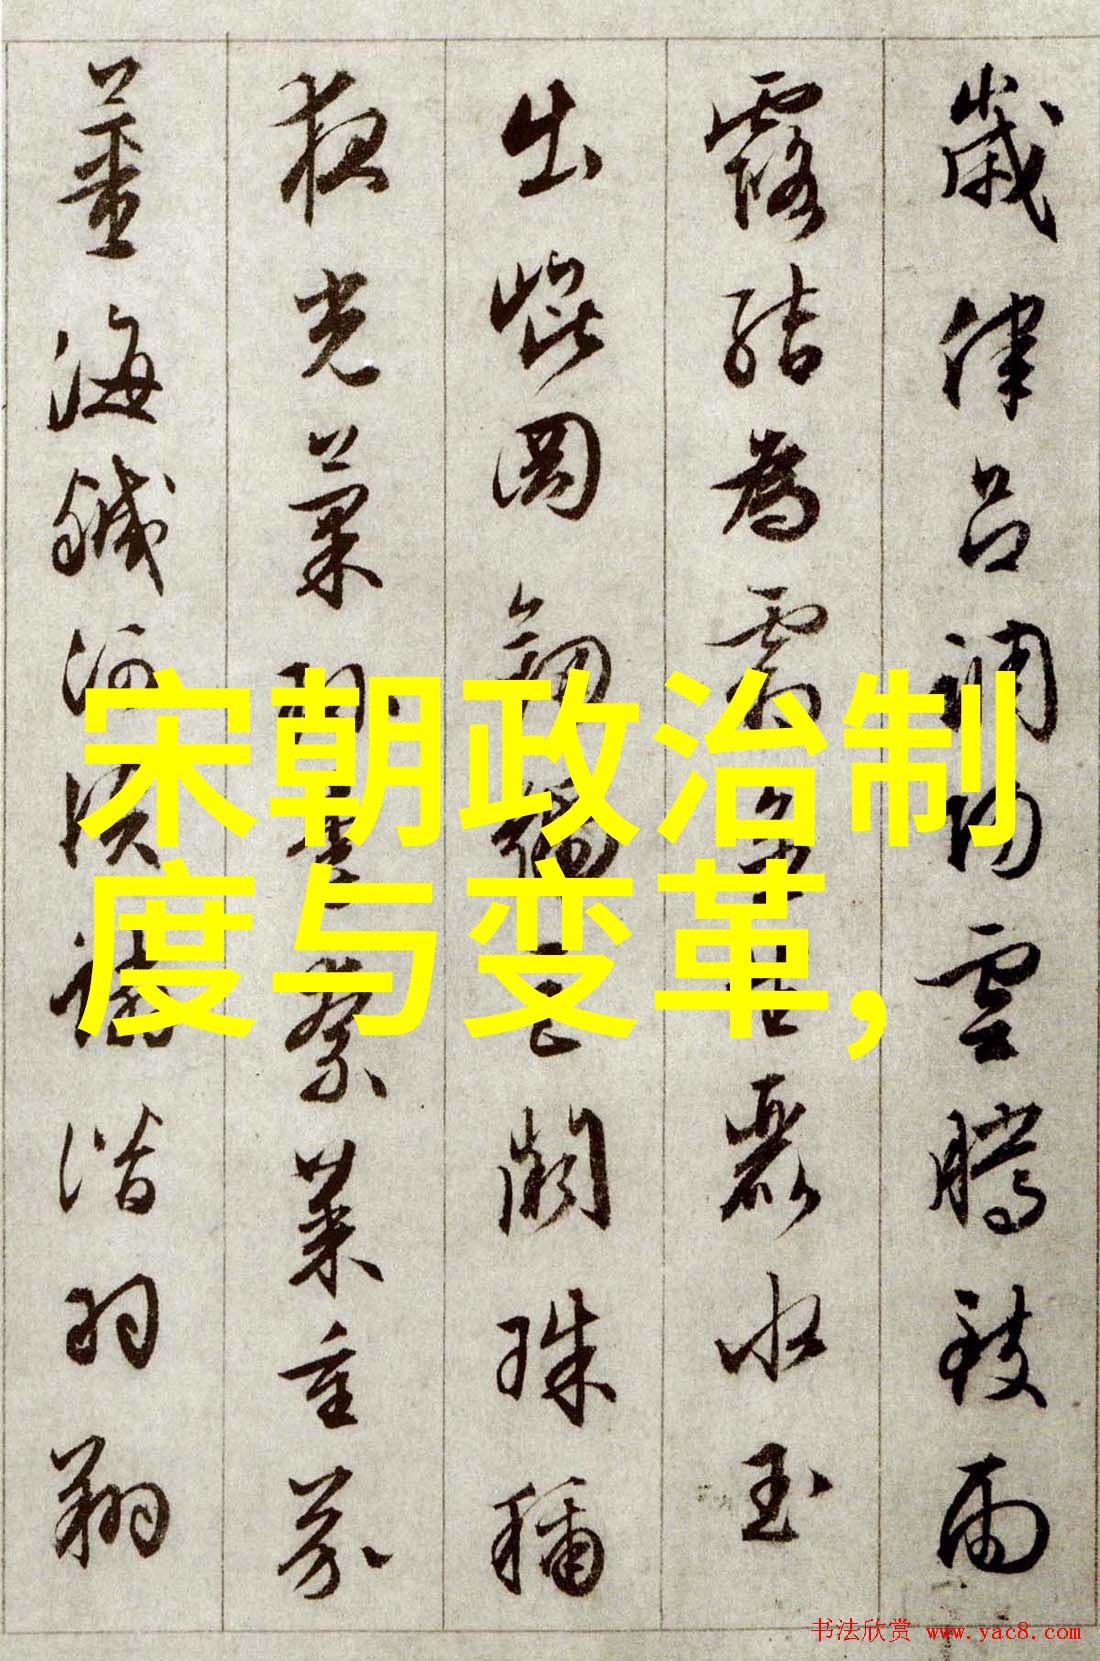 歲律呂調陽雲騰致雨
露結為霜金生麗水玉
出崑岡劍號巨闕珠稱
夜光菓珍李柰菜重芥
薑海鹹河淡鱗潛羽翔
宋朝政治制
度与变革,
书法欣赏 www.yac8.com